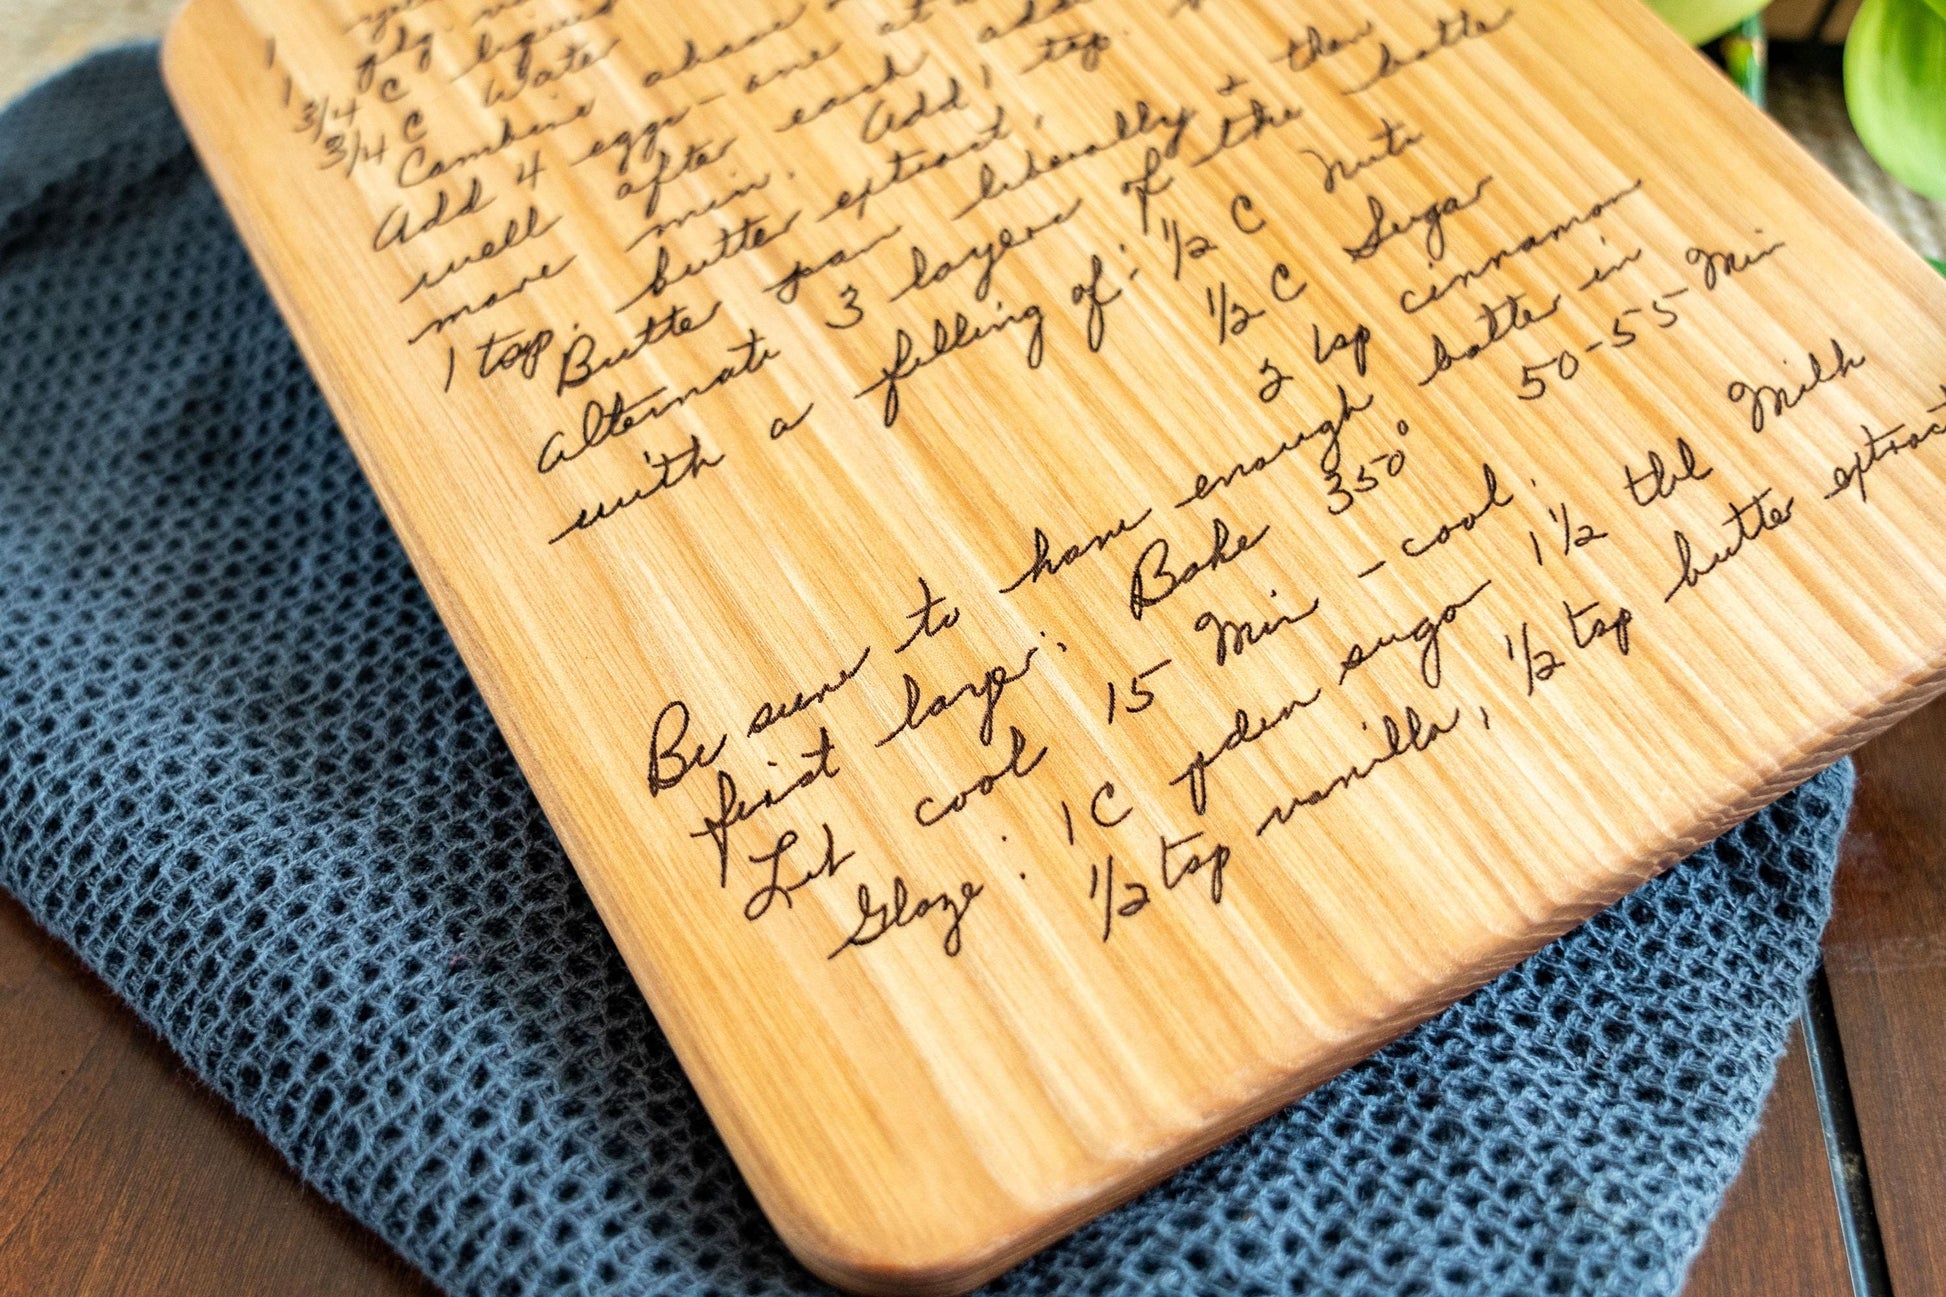 1
1 pdg. 
3/4 C liquid
3/4 C Water
Combine above
Add 4 eggs - one at a
well after each add
more min. Add 1 tsp.
1 tsp. butter extract.
Butter pan liberally & then
alternate 3 layers of the batter
with a filling of: 1/2 C Nuts
1/2 C Sugar
2 tsp cinnamon
Be sure to have enough batter in
first layer. Bake 350° 50-55 Min
Let cool 15 Min - cool.
Glaze: 1 C pden sugar 1 1/2 tbl Milk
1/2 tsp vanilla, 1/2 tsp butter extract